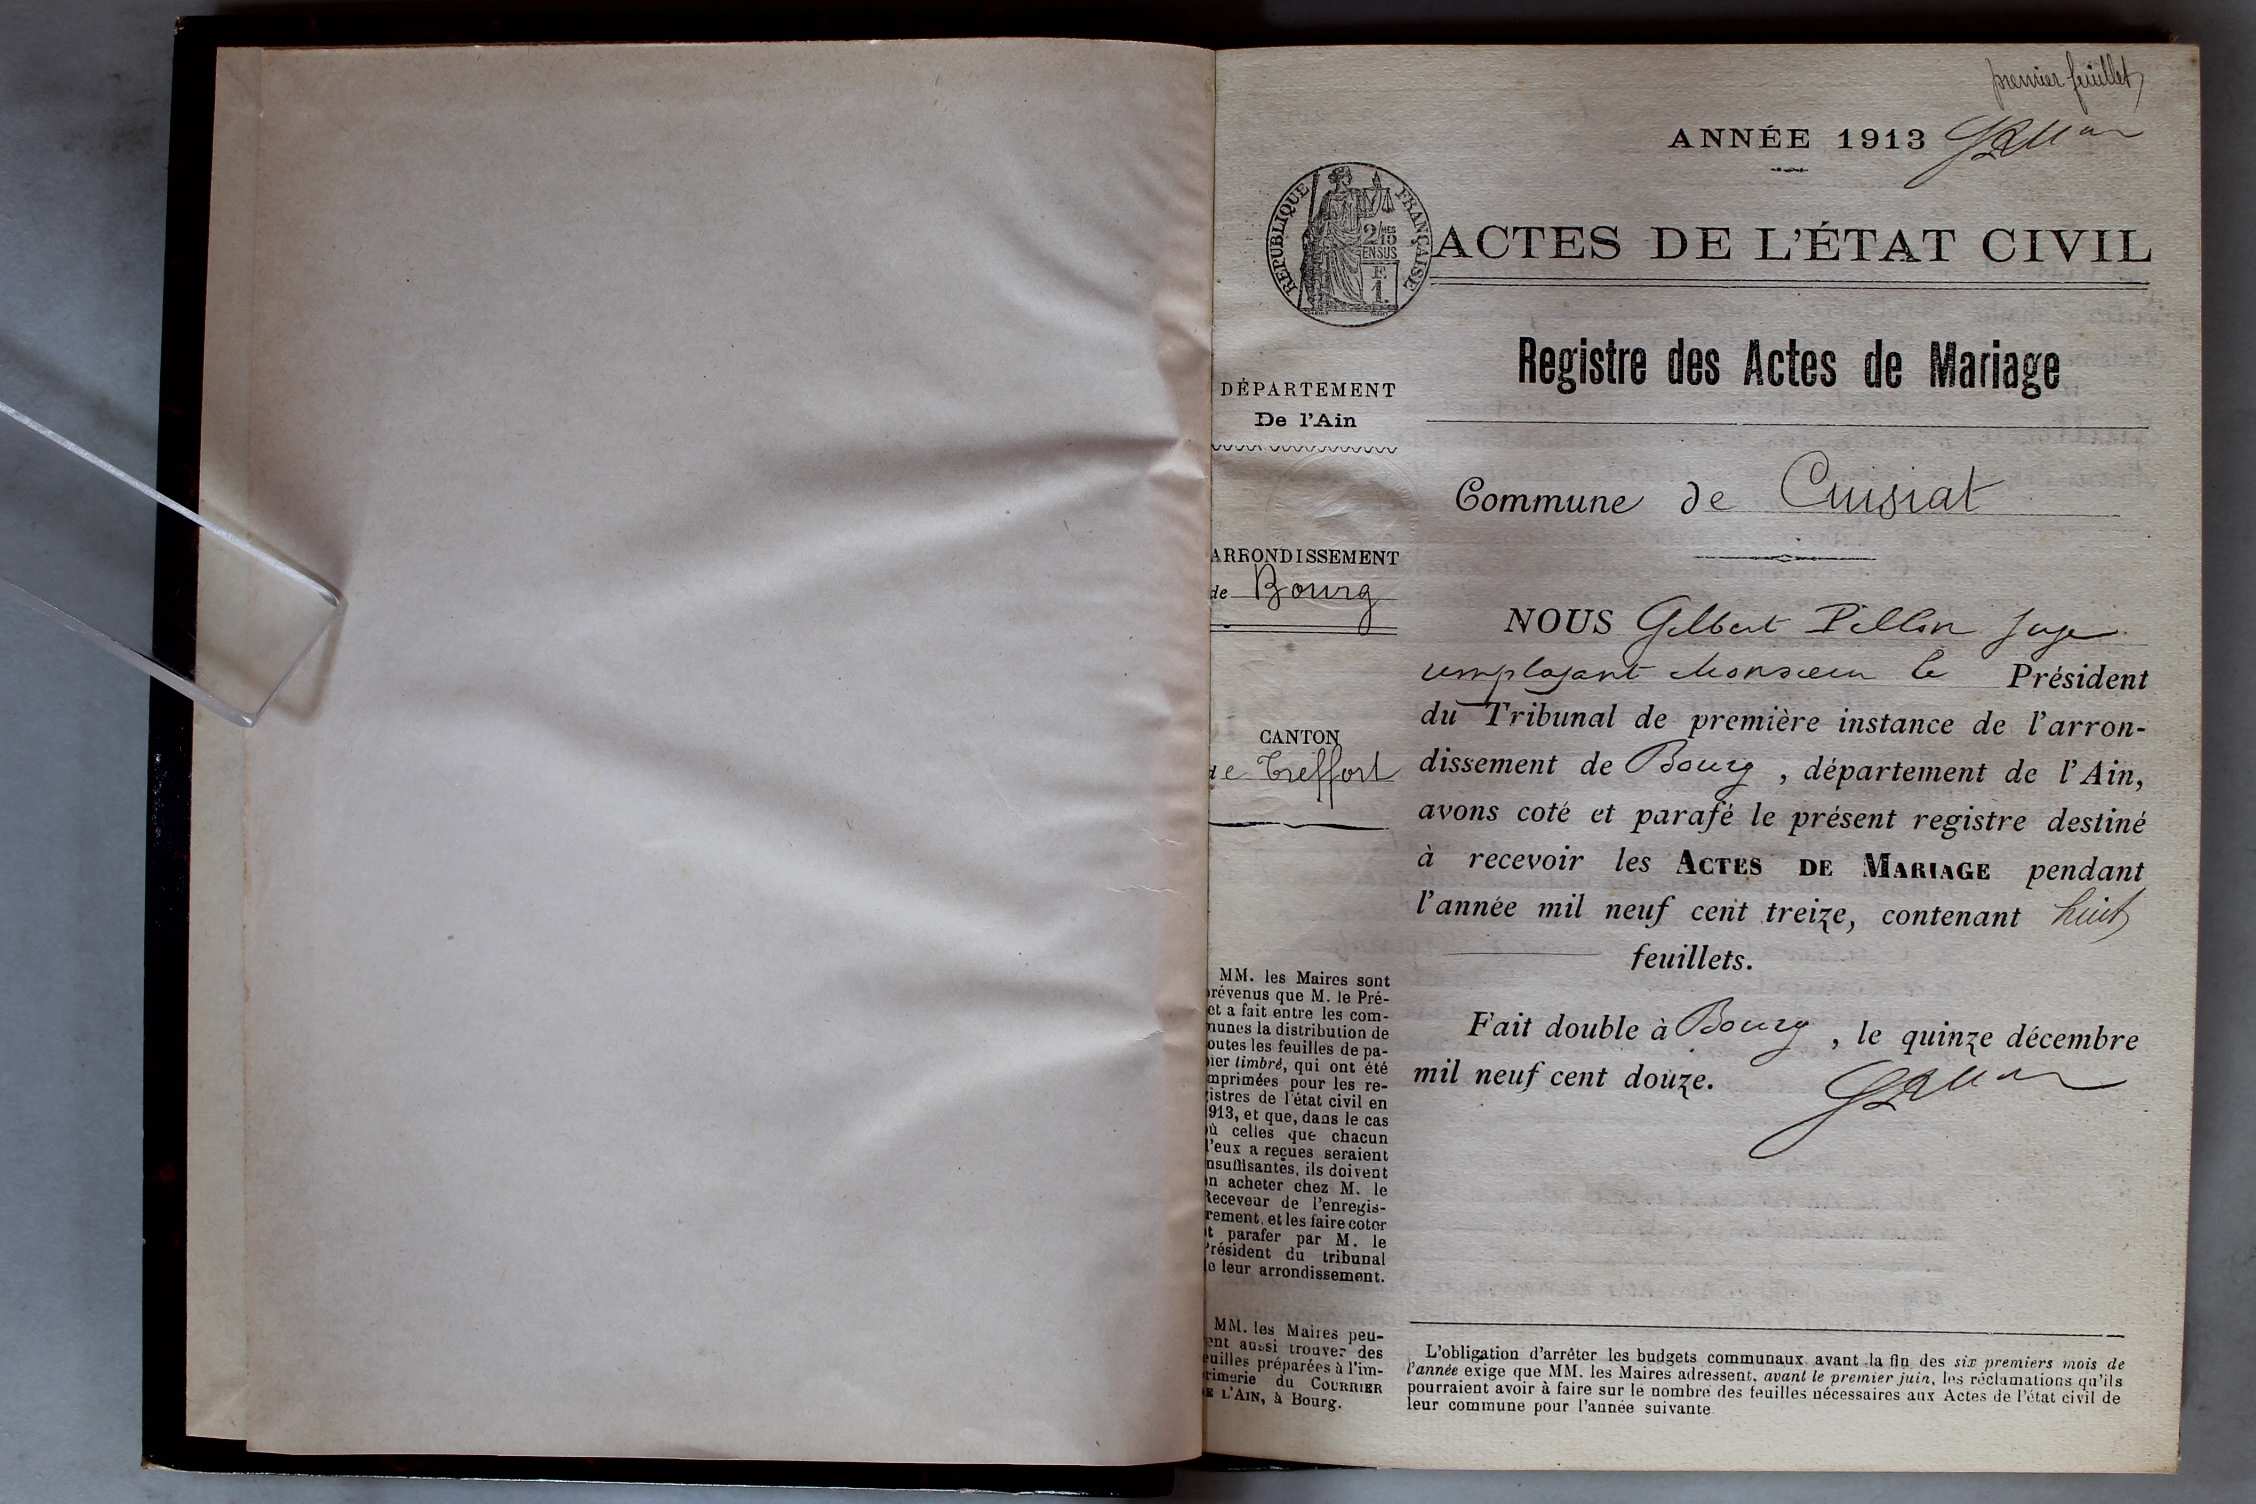 premier feuillet
ANNÉE 1913
RÉPUBLIQUE FRANÇAISE
2/10
MES
EN SUS
F.
1.
ACTES DE L'ÉTAT CIVIL
Registre des Actes de Mariage
DÉPARTEMENT
De l'Ain
Commune de Cuisiat
ARRONDISSEMENT
de Bourg
CANTON
de Treffort
NOUS Gilbert Pillon juge
remplaçant Monsieur le Président
du Tribunal de première instance de l'arron-
dissement de Bourg, département de l'Ain,
avons coté et parafé le présent registre destiné
à recevoir les ACTES DE MARIAGE pendant
l'année mil neuf cent treize, contenant huit
feuillets.
Fait double à Bourg, le quinze décembre
mil neuf cent douze.
MM. les Maires sont
prévenus que M. le Pré-
et a fait entre les com-
munes la distribution de
toutes les feuilles de pa-
pier timbré, qui ont été
imprimées pour les re-
gistres de l'état civil en
1913, et que, dans le cas
où celles que chacun
d'eux a reçues seraient
insuffisantes, ils doivent
en acheter chez M. le
Receveur de l'enregis-
trement, et les faire coter
et parafer par M. le
Président du tribunal
de leur arrondissement.
MM. les Maires peu-
vent aussi trouver des
feuilles préparées à l'im-
primerie du COURRIER
DE L'AIN, à Bourg.
L'obligation d'arrêter les budgets communaux avant la fin des six premiers mois de
l'année exige que MM. les Maires adressent, avant le premier juin, les réclamations qu'ils
pourraient avoir à faire sur le nombre des feuilles nécessaires aux Actes de l'état civil de
leur commune pour l'année suivante